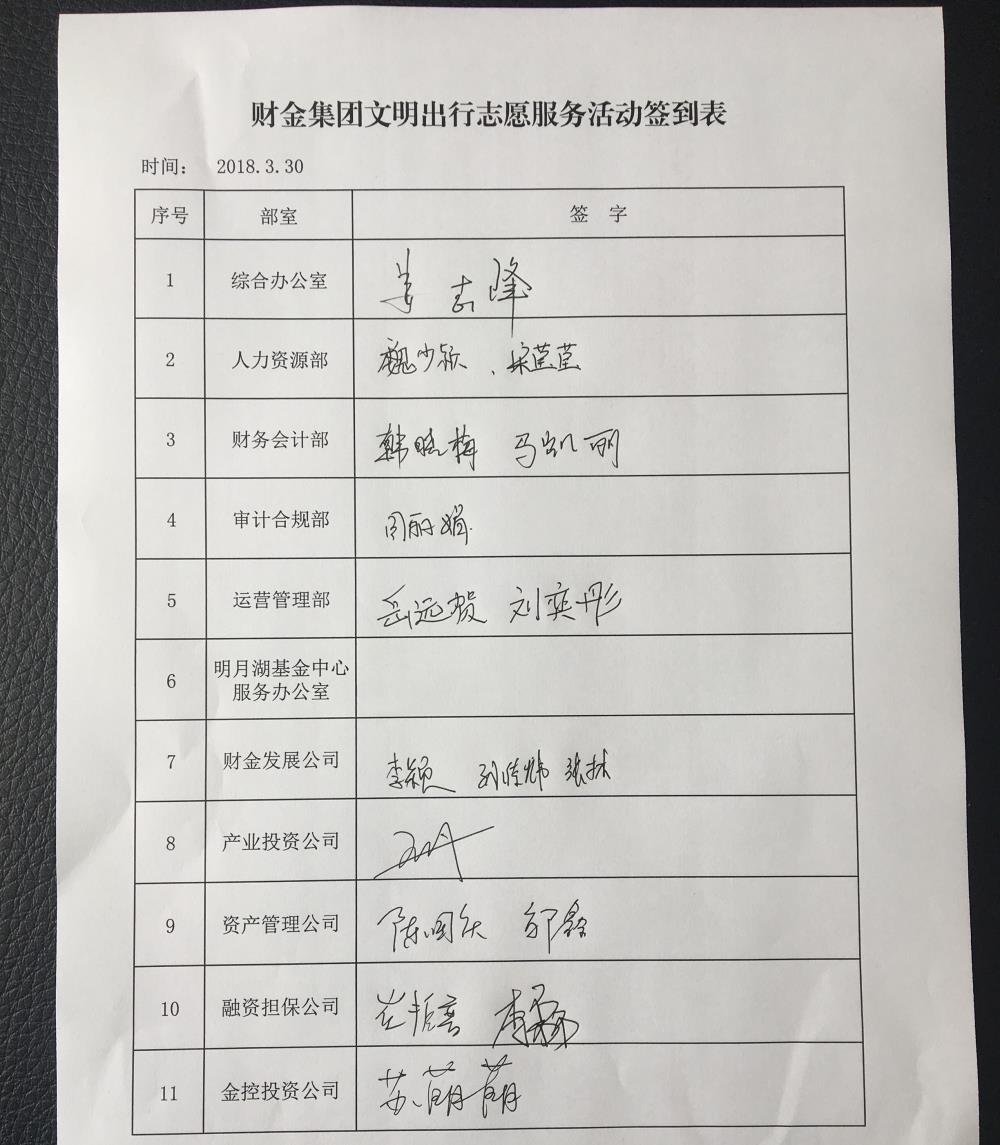 财金集团文明出行志愿服务活动签到表
时间： 2018.3.30
序号 部室 签 字
1 综合办公室 姜志峰
2 人力资源部 魏少颖、宋莒莒
3 财务会计部 韩晓梅 马凯丽
4 审计合规部 周丽娟
5 运营管理部 岳远贺 刘奕彤
6 明月湖基金中心
服务办公室
7 财金发展公司 李颖 张林
8 产业投资公司
9 资产管理公司 陈国庆 郭鑫
10 融资担保公司
11 金控投资公司 苏萌萌